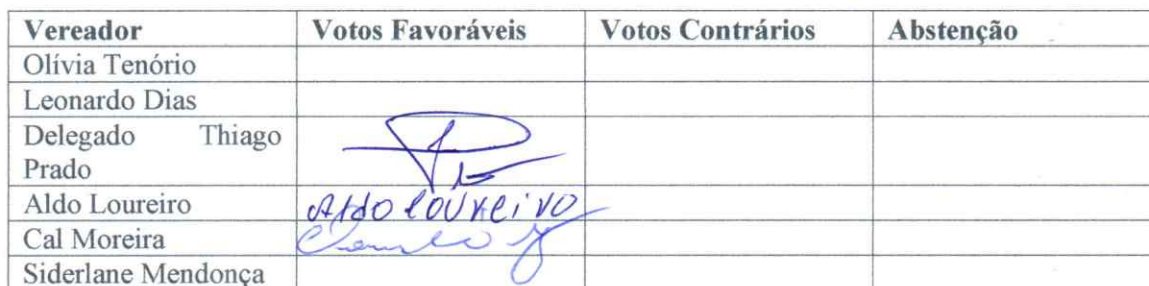 Vereador Votos Favoráveis Votos Contrários Abstenção
Olívia Tenório
Leonardo Dias
Delegado Thiago
Prado
Aldo Loureiro Aldo Loureiro
Cal Moreira
Siderlane Mendonça